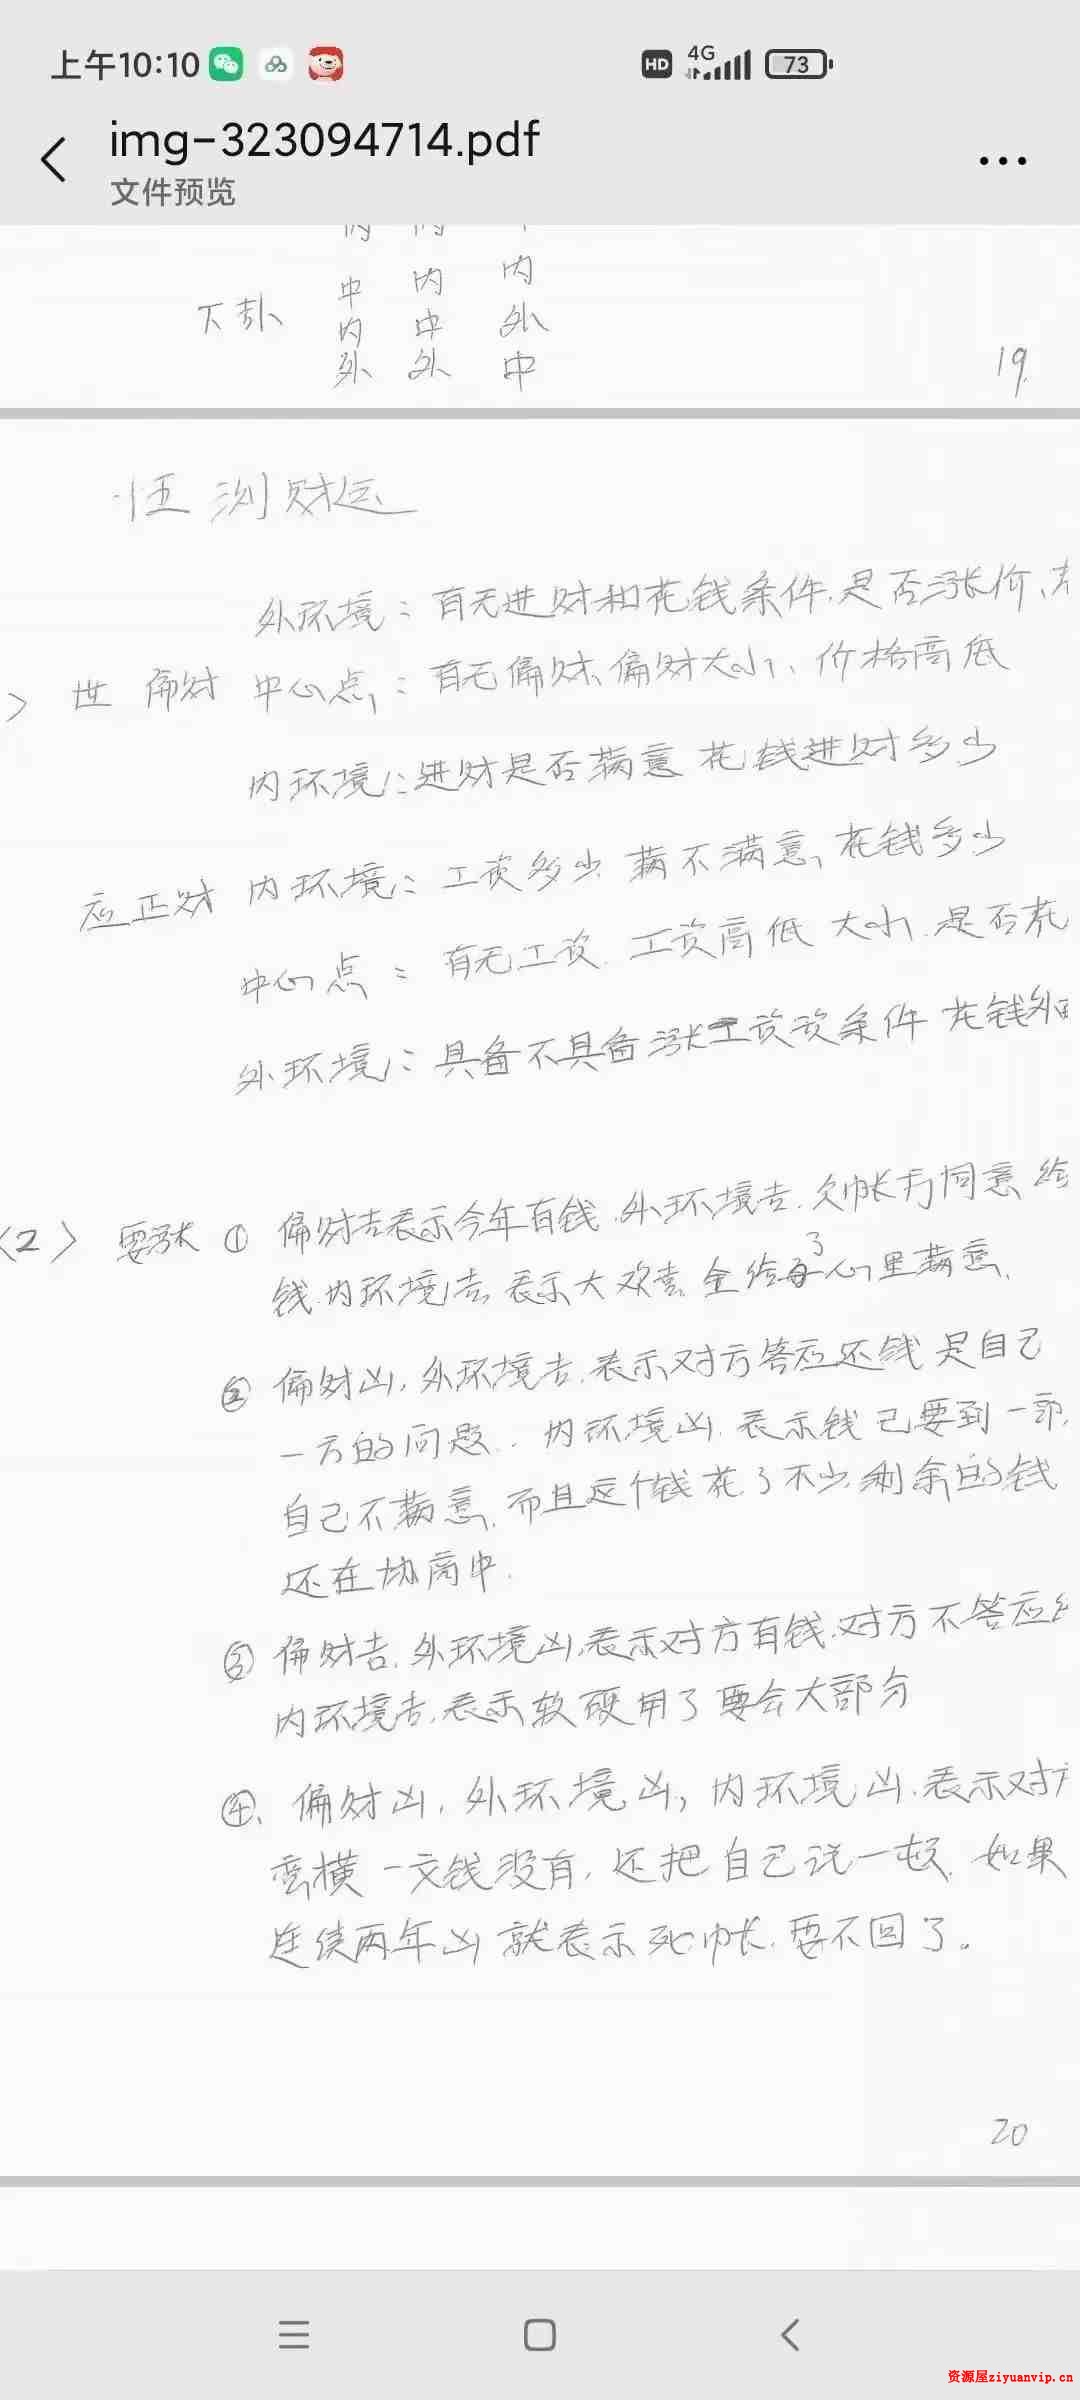 上午10:10
HD 4G 73
img-323094714.pdf
文件预览
下卦
中 内 内
内 中 外
外 外 中
19.
测财运
外环境：有无进财和花钱条件.是否涨价、
世 偏财 中心点：有无偏财、偏财大小、价格高低
内环境：进财是否满意 花钱进财多少
应正财 内环境：工资多少 满不满意、花钱多少
中心点：有无工资.工资高低 大小.是否花
外环境：具备不具备涨工资条件 花钱外
〈2〉 要账 ① 偏财吉表示今年有钱.外环境吉.欠帐方同意 给
钱.内环境吉.表示大欢喜.全给了心里满意.
② 偏财凶,外环境吉.表示对方答应还钱 是自己
一方的问题.内环境凶.表示钱 已要到一部
自己不满意.而且这个钱花了不少.剩余的钱
还在协商中.
③ 偏财吉.外环境凶.表示对方有钱.对方不答应
内环境吉.表示软硬用了要会大部分
④、偏财凶,外环境凶,内环境凶.表示对方
蛮横 一文钱没有,还把自己说一顿.如果
连续两年凶 就表示死帐.要不回了。
20
资源屋ziyuanvip.cn